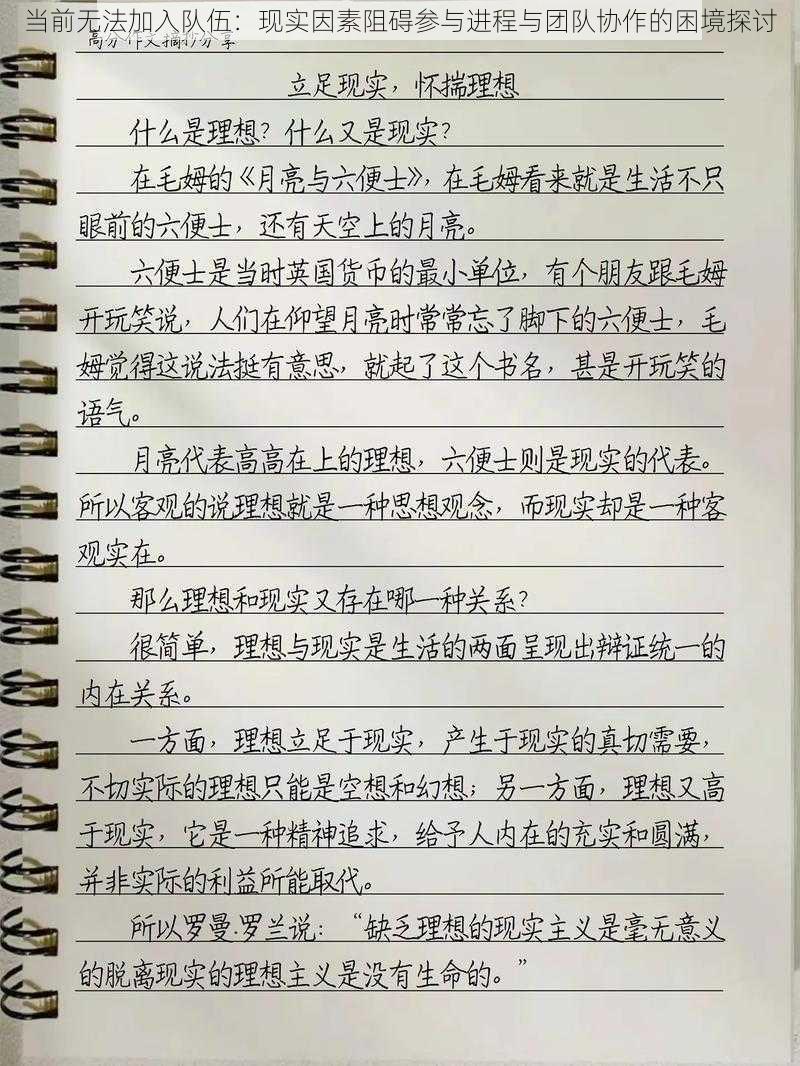 当前无法加入队伍：现实因素阻碍参与进程与团队协作的困境探讨
高分作文摘抄分享
立足现实，怀揣理想
什么是理想？什么又是现实？
在毛姆的《月亮与六便士》，在毛姆看来就是生活不只
眼前的六便士，还有天空上的月亮。
六便士是当时英国货币的最小单位，有个朋友跟毛姆
开玩笑说，人们在仰望月亮时常常忘了脚下的六便士，毛
姆觉得这说法挺有意思，就起了这个书名，甚是开玩笑的
语气。
月亮代表高高在上的理想，六便士则是现实的代表。
所以客观的说理想就是一种思想观念，而现实却是一种客
观实在。
那么理想和现实又存在哪一种关系？
很简单，理想与现实是生活的两面呈现出辩证统一的
内在关系。
一方面，理想立足于现实，产生于现实的真切需要，
不切实际的理想只能是空想和幻想；另一方面，理想又高
于现实，它是一种精神追求，给予人内在的充实和圆满，
并非实际的利益所能取代。
所以罗曼.罗兰说：“缺乏理想的现实主义是毫无意义
的脱离现实的理想主义是没有生命的。”